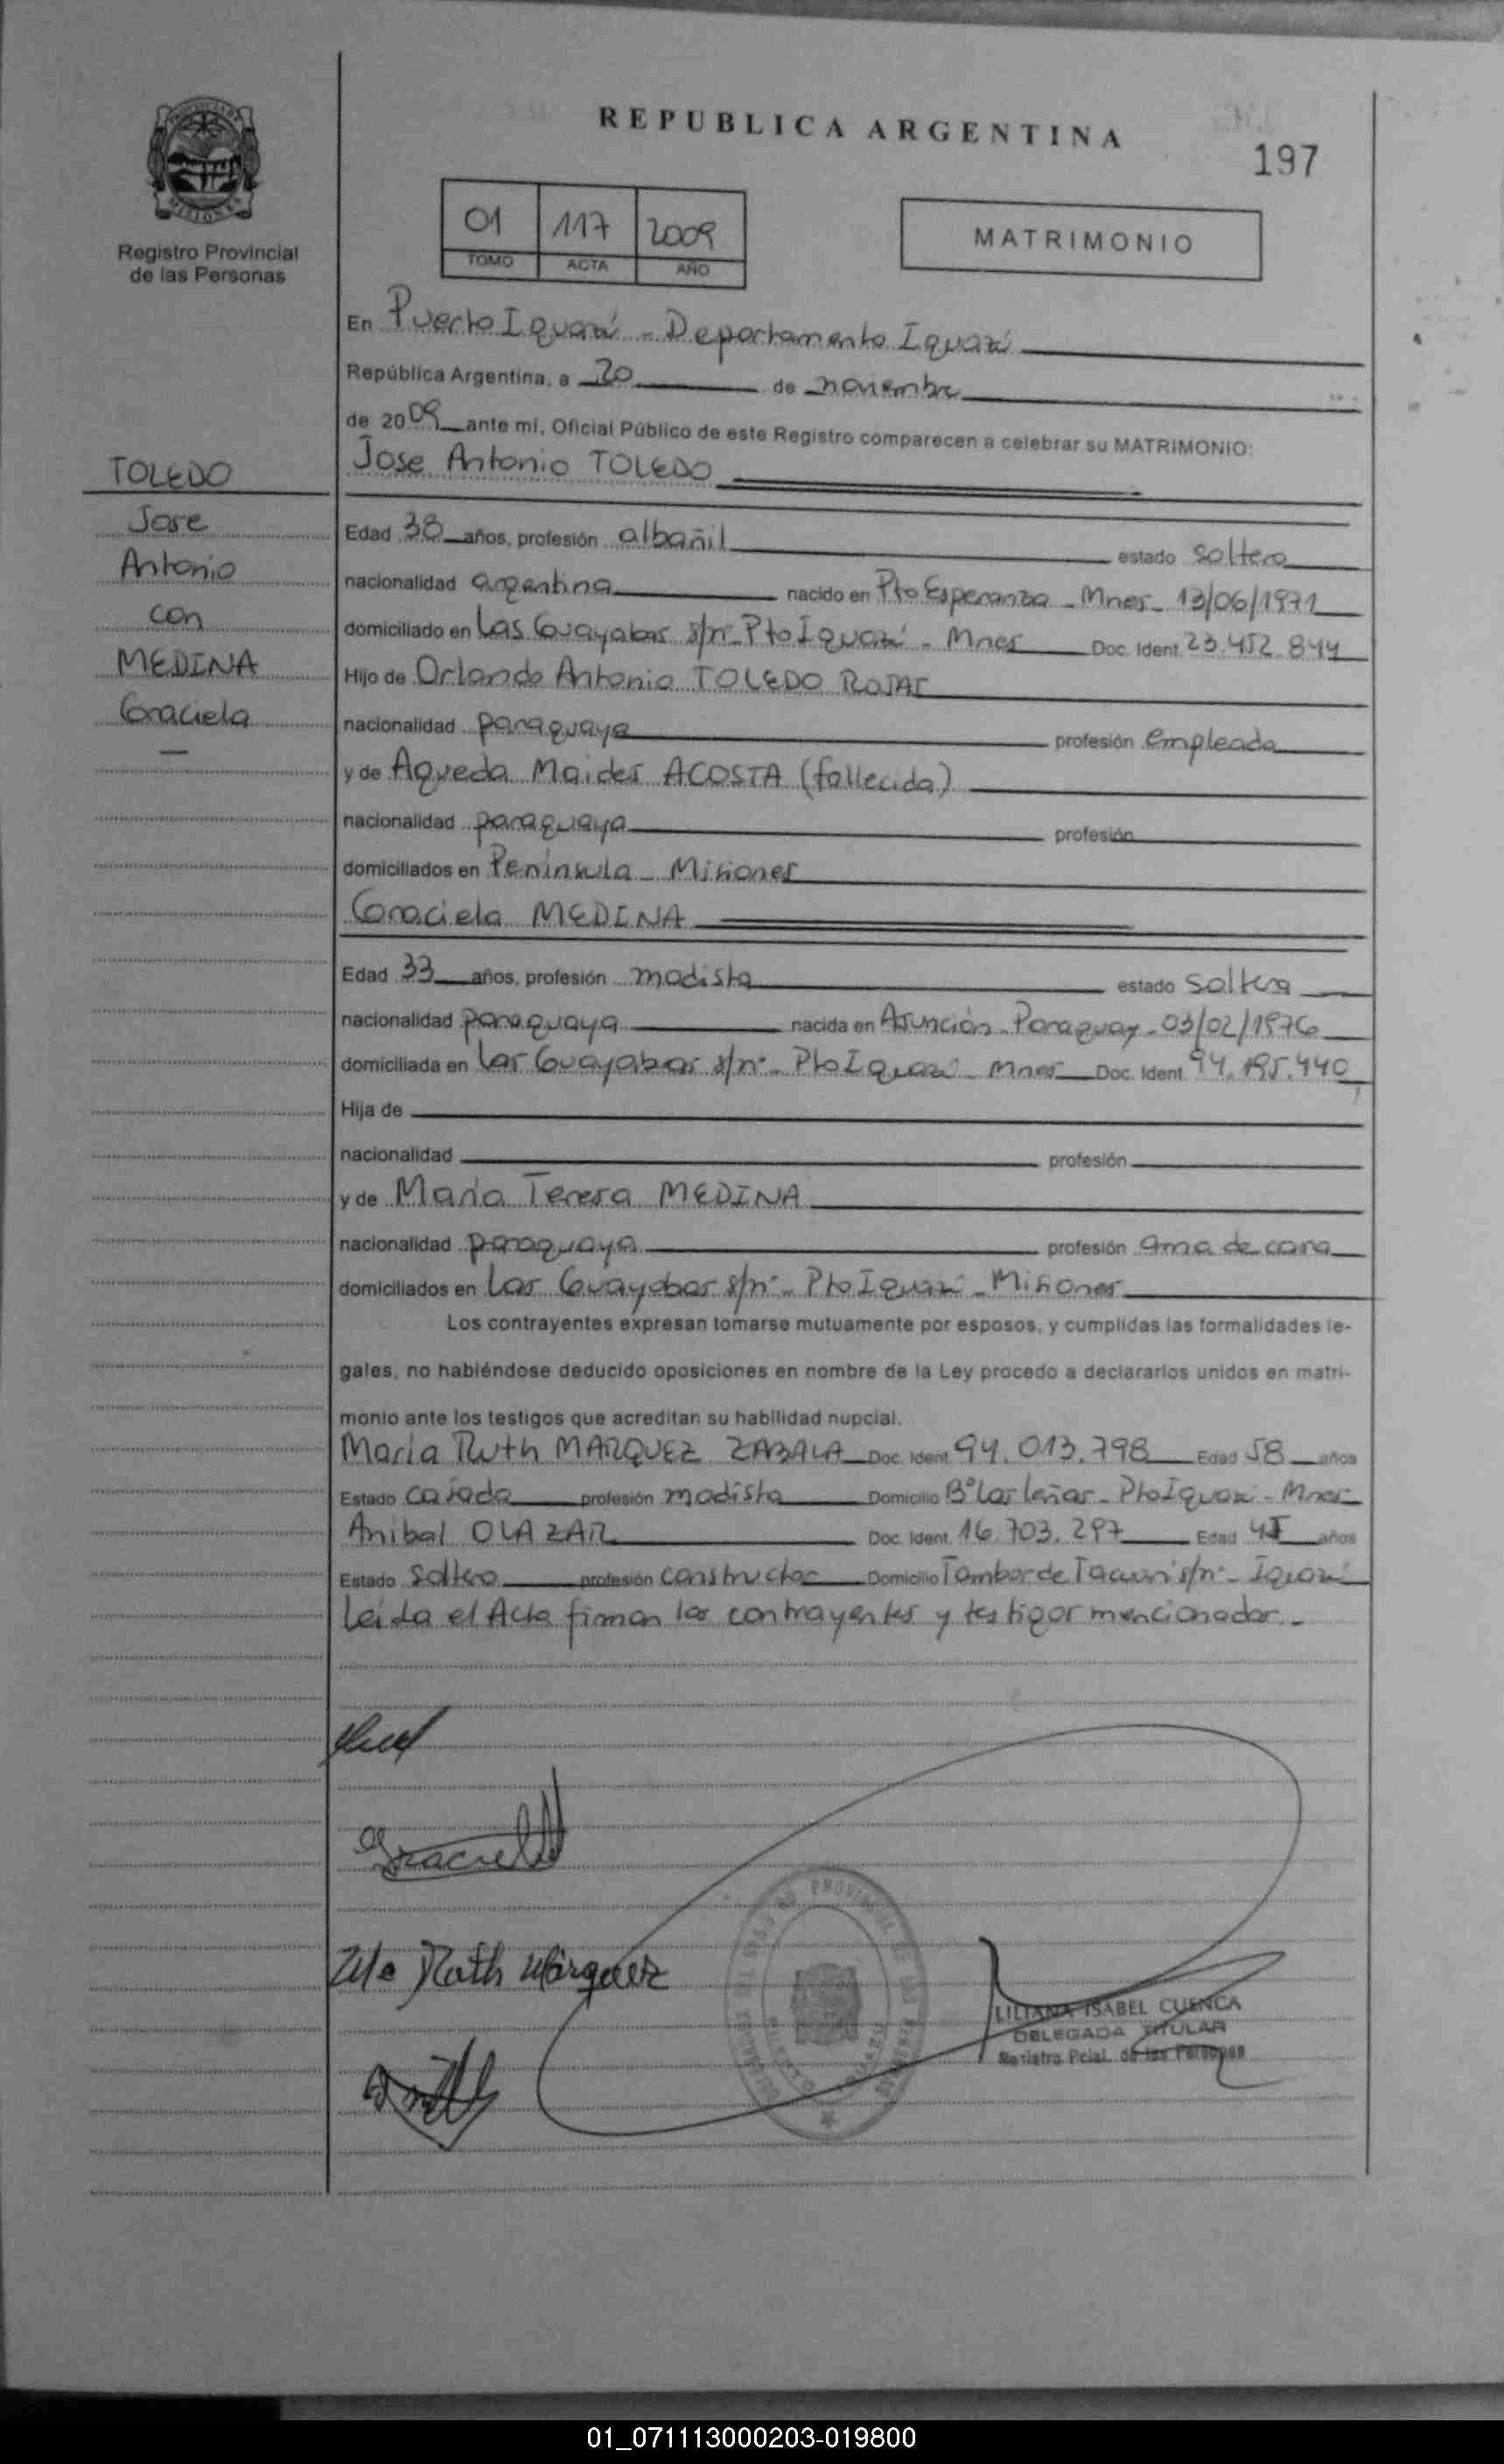 REPUBLICA ARGENTINA
197
Registro Provincial
de las Personas
01 117 2009
TOMO ACTA AÑO
MATRIMONIO
En Puerto Iguazú - Departamento Iguazú
República Argentina, a 20 de noviembre
de 2009 ante mi, Oficial Público de este Registro comparecen a celebrar su MATRIMONIO:
TOLEDO
Jose
Antonio
con
MEDINA
Graciela
Jose Antonio TOLEDO
Edad 38 años, profesión albañil estado soltero
nacionalidad argentina nacido en Pto Esperanza - Mnes - 13/06/1971
domiciliado en Las Guayabas s/nº - Pto Iguazú - Mnes Doc. Ident. 23.452.844
Hijo de Orlando Antonio TOLEDO ROJAS
nacionalidad paraguaya profesión empleado
y de Agueda Maides ACOSTA (fallecida)
nacionalidad paraguaya profesión
domiciliados en Península - Misiones
Graciela MEDINA
Edad 33 años, profesión modista estado soltera
nacionalidad paraguaya nacida en Asunción - Paraguay - 03/02/1976
domiciliada en Las Guayabas s/nº - Pto Iguazú - Mnes Doc. Ident. 94.195.440
Hija de
nacionalidad profesión
y de María Teresa MEDINA
nacionalidad paraguaya profesión ama de casa
domiciliados en Las Guayabas s/nº - Pto Iguazú - Misiones
Los contrayentes expresan tomarse mutuamente por esposos, y cumplidas las formalidades le-
gales, no habiéndose deducido oposiciones en nombre de la Ley procedo a declararlos unidos en matri-
monio ante los testigos que acreditan su habilidad nupcial.
María Ruth MARQUEZ ZABALA Doc. Ident. 94.013.798 Edad 58 años
Estado casada profesión modista Domicilio Bº Las Leñas - Pto Iguazú - Mnes
Anibal OLAZAR Doc. Ident. 16.703.297 Edad 45 años
Estado soltero profesión constructor Domicilio Tambor de Tacuari s/nº - Iguazú
Leída el Acta firman los contrayentes y testigos mencionados -
Ma Ruth Márquez
LILIANA ISABEL CUENCA
DELEGADA TITULAR
Registro Pcial. de las Personas
01_071113000203-019800